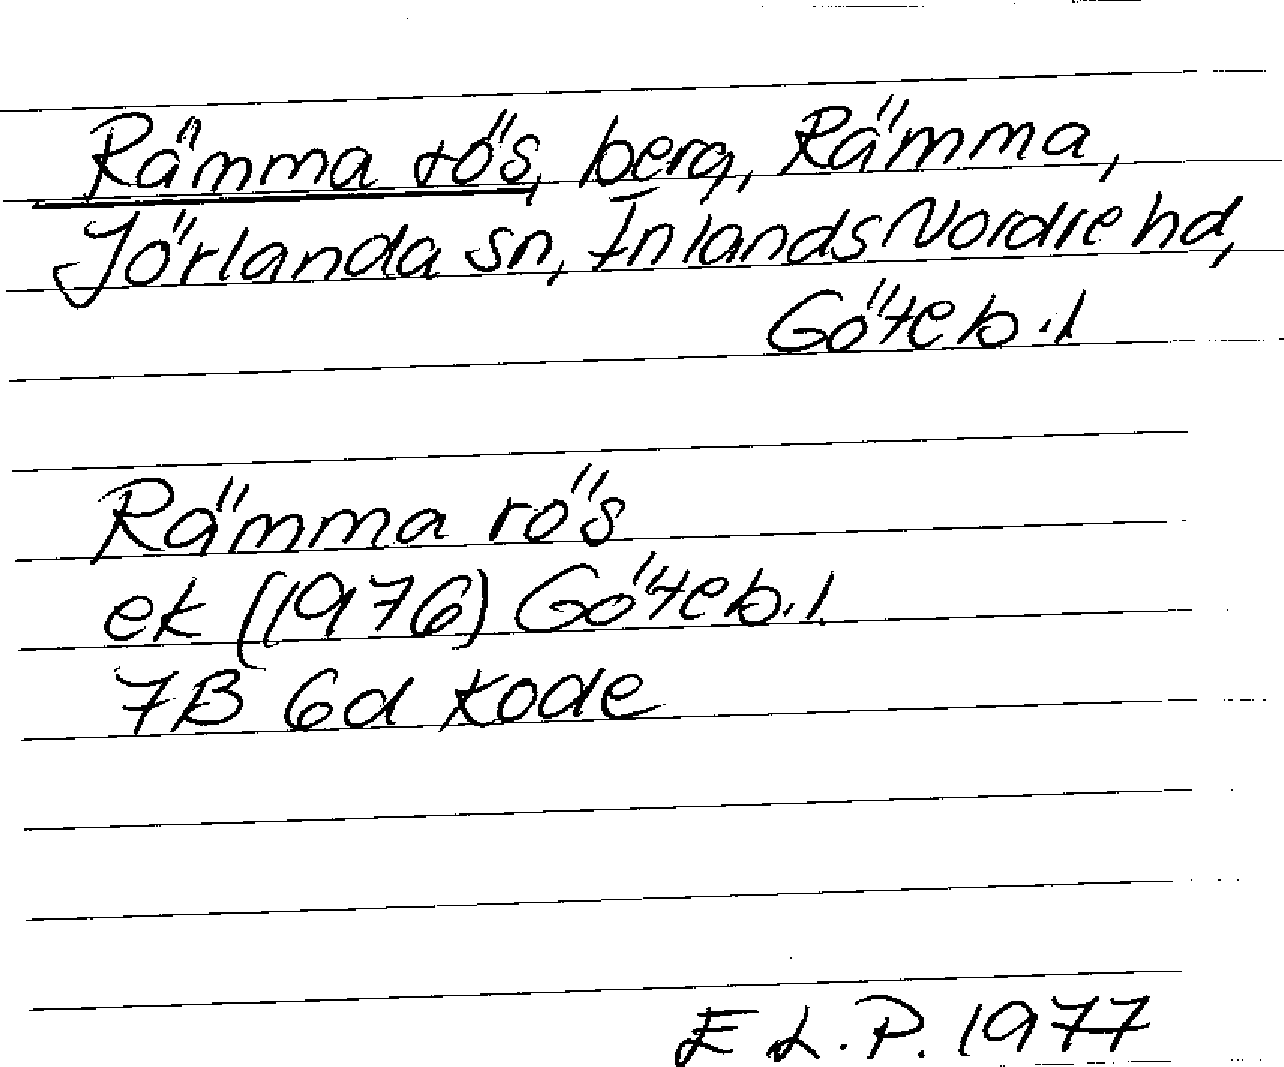 Rämma rös, berg, Rämma,
Jörlanda sn, Inlands Nordre hd,
Göteb.l
Rämma rös
ek (1976) Göteb.l.
7B 6d Kode
E L.P. 1977